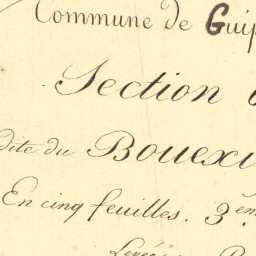 Commune de Guip
Section
dite du Bouexi
En cinq feuilles. 3em
Levée